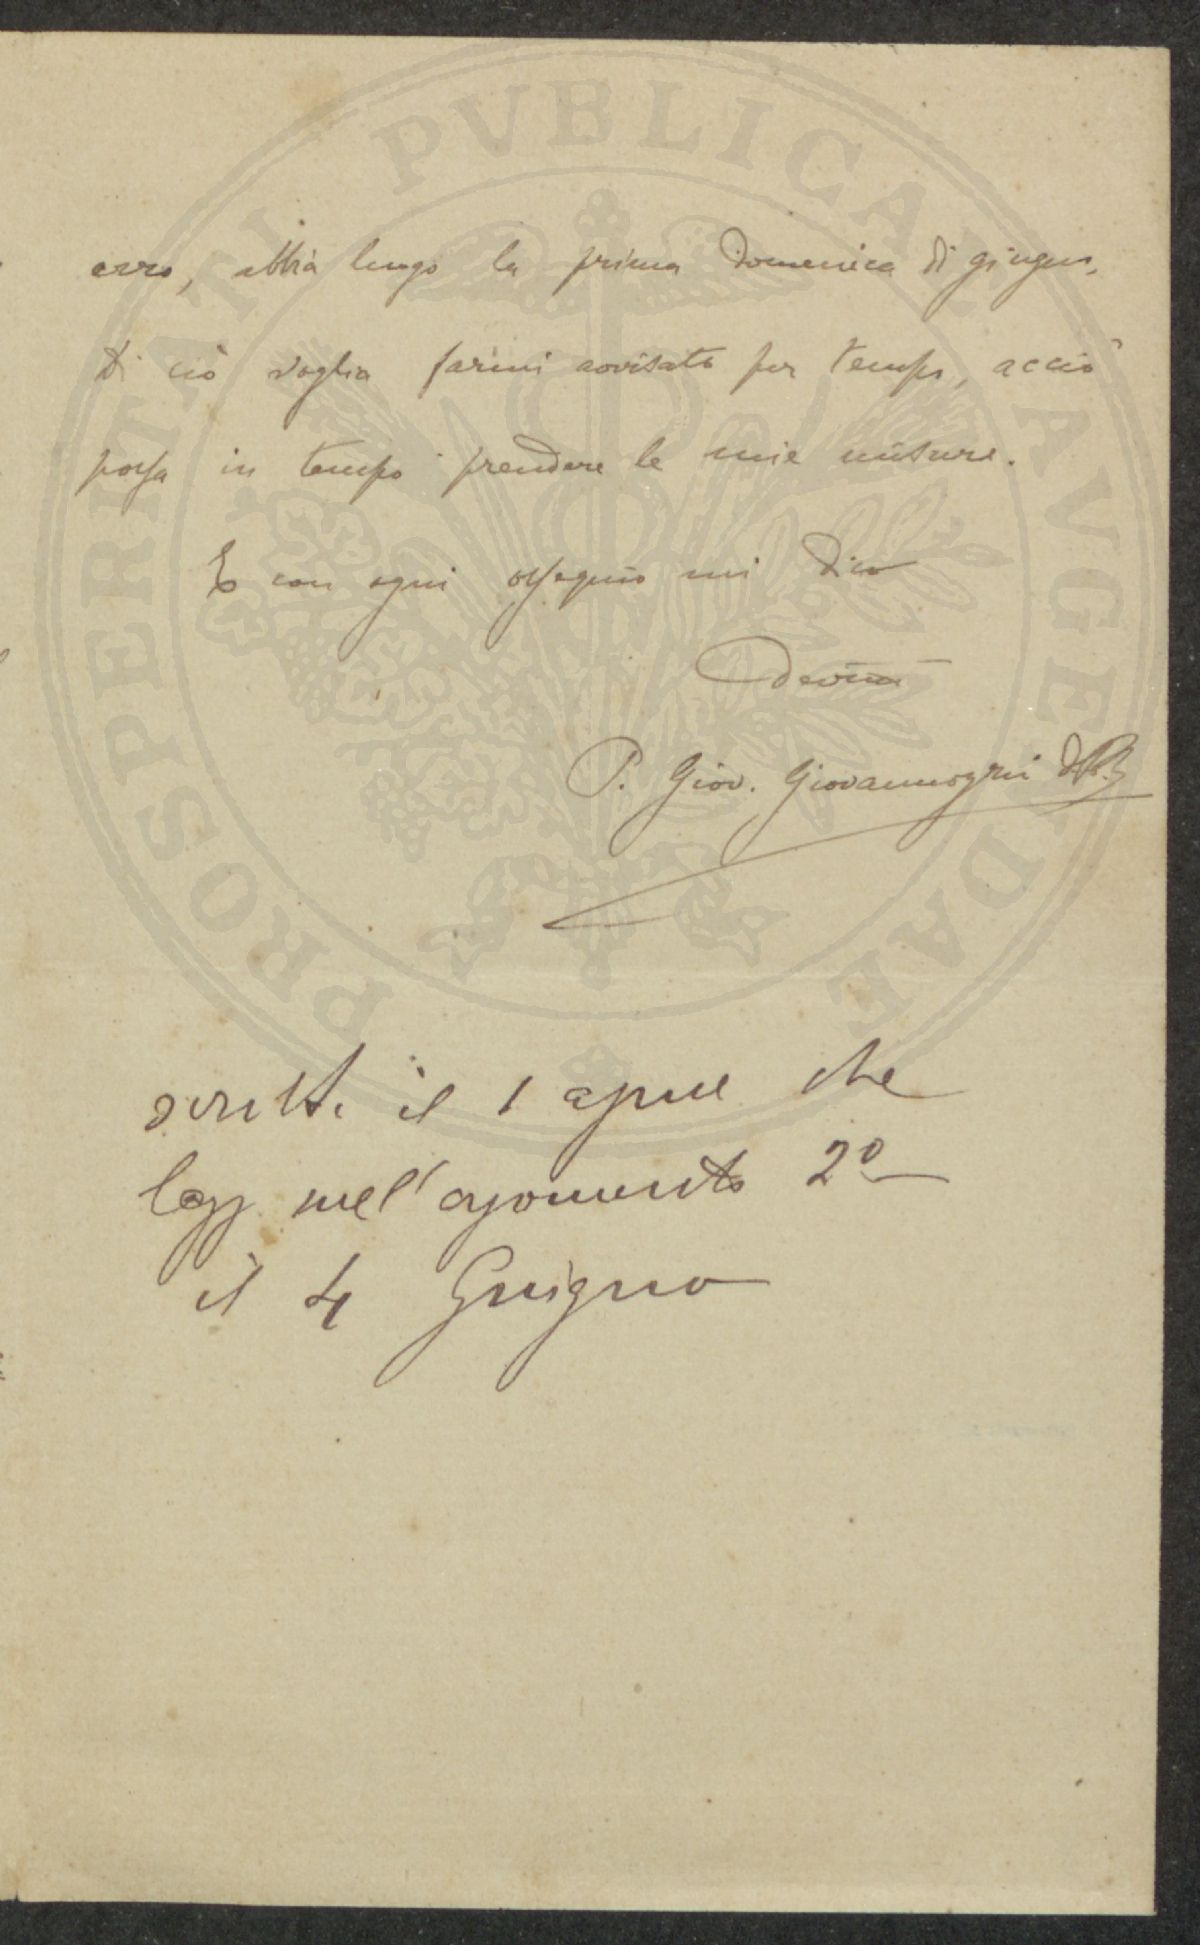 erro, abbia luogo la prima Domenica di giugno.
Di ciò voglia farmi avvisato per tempo, acciò
possa in tempo prendere le mie misure.
E con ogni ossequio mi dico
Devmo
P. Giov. Giovannozzi d. S. P.
scritto il 1 aprile che
legg nell'argomento 2º
il 4 Giugno
PROSPERITATI PVBLICAE AVGENDAE